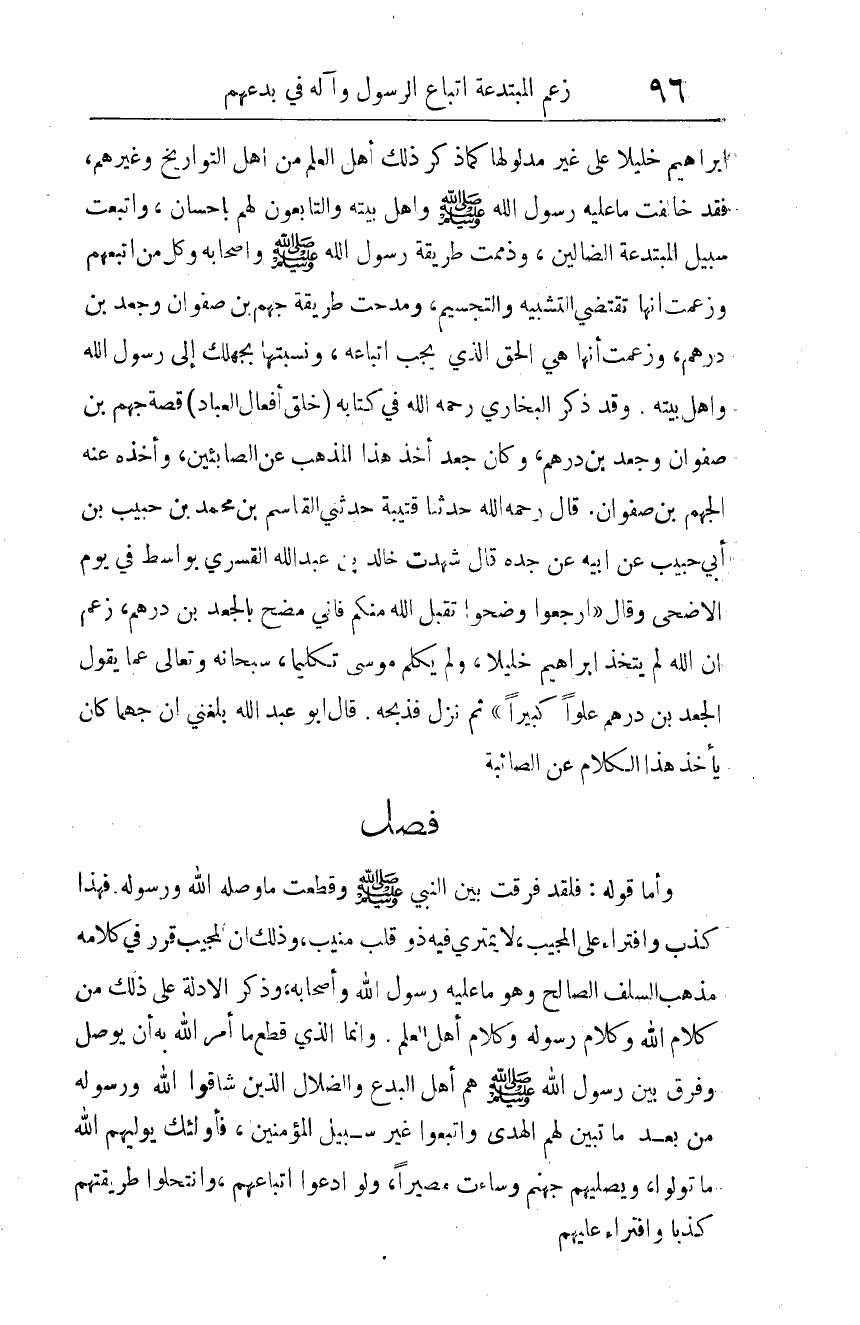 ٩٦ زعم المبتدعة اتباع الرسول وآله في بدعهم
ابراهيم خليلا على غير مدلولها كما ذكر ذلك أهل العلم من اهل التواريخ وغيرهم،
فقد خالفت ما عليه رسول الله ﷺ واهل بيته والتابعون لهم بإحسان ، واتبعت
سبيل المبتدعة الضالين ، وذممت طريقة رسول الله ﷺ واصحابه وكل من اتبعهم
وزعمت انها تقتضي التشبيه والتجسيم، ومدحت طريقة جهم بن صفوان وجعد بن
درهم، وزعمت أنها هي الحق الذي يجب اتباعه ، ونسبتها بجهلك إلى رسول الله
واهل بيته . وقد ذكر البخاري رحمه الله في كتابه (خلق أفعال العباد) قصة جهم بن
صفوان وجعد بن درهم، وكان جعد أخذ هذا المذهب عن الصابئين، وأخذه عنه
الجهم بن صفوان. قال رحمه الله حدثنا قتيبة حدثني القاسم بن محمد بن حبيب بن
أبي حبيب عن ابيه عن جده قال شهدت خالد بن عبدالله القسري بواسط في يوم
الاضحى وقال «ارجعوا وضحوا تقبل الله منكم فاني مضح بالجعد بن درهم، زعم
ان الله لم يتخذ ابراهيم خليلا ، ولم يكلم موسى تكليما، سبحانه وتعالى عما يقول
الجعد بن درهم علواً كبيراً » ثم نزل فذبحه . قال ابو عبد الله بلغني ان جهما كان
يأخذ هذا الكلام عن الصائبة
فصل
وأما قوله : فلقد فرقت بين النبي ﷺ وقطعت ما وصله الله ورسوله. فهذا
كذب وافتراء على المجيب، لا يمتري فيه ذو قلب منيب، وذلك ان المجيب قرر في كلامه
مذهب السلف الصالح وهو ما عليه رسول الله وأصحابه، وذكر الادلة على ذلك من
كلام الله وكلام رسوله وكلام أهل العلم . وانما الذي قطع ما أمر الله به أن يوصل
وفرق بين رسول الله ﷺ هم أهل البدع والضلال الذين شاقوا الله ورسوله
من بعد ما تبين لهم الهدى واتبعوا غير سبيل المؤمنين ، فأولئك يوليهم الله
ما تولوا، ويصليهم جهنم وساءت مصيراً، ولو ادعوا اتباعهم ،وانتحلوا طريقتهم
كذبا وافتراء عليهم